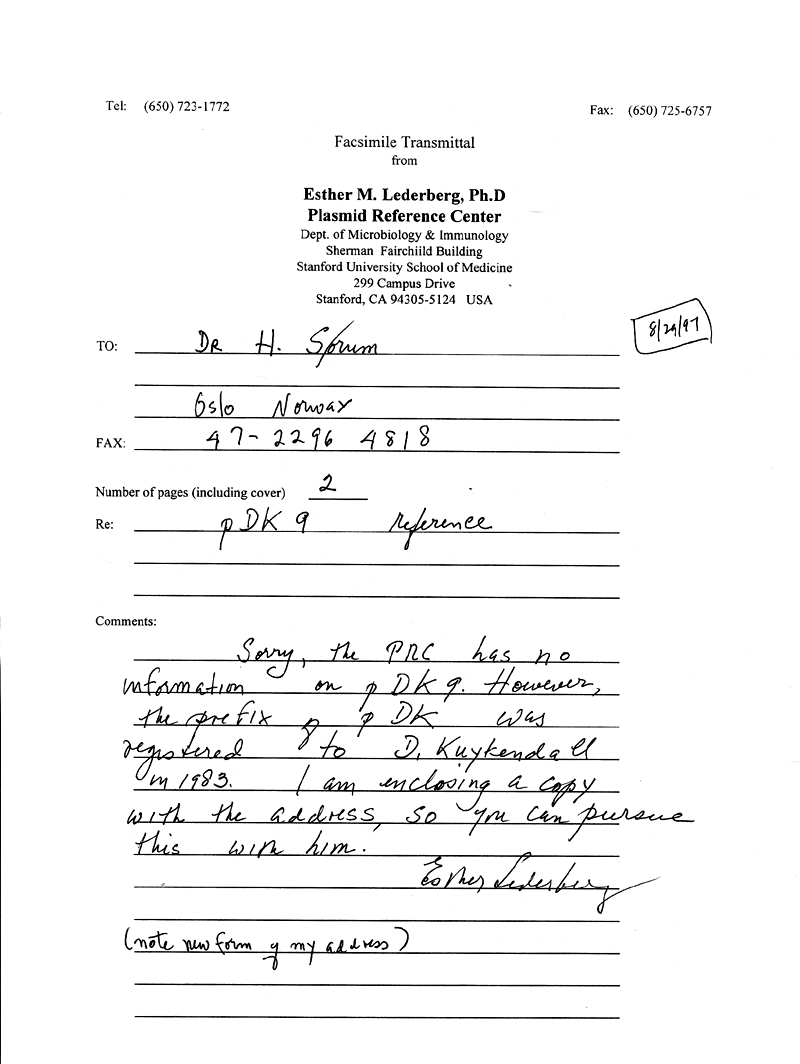 Tel: (650) 723-1772
Fax: (650) 725-6757
Facsimile Transmittal
from
Esther M. Lederberg, Ph.D
Plasmid Reference Center
Dept. of Microbiology & Immunology
Sherman Fairchiild Building
Stanford University School of Medicine
299 Campus Drive
Stanford, CA 94305-5124 USA
8/29/97
TO: DR H. Sørum
Oslo Norway
FAX: 47-2296 4818
Number of pages (including cover) 2
Re: pDK 9 reference
Comments:
Sorry, the PRC has no
information on pDK 9. However,
the prefix pDK was
registered to D. Kuykendall
in 1983. I am enclosing a copy
with the address, so you can pursue
this with him.
Esther Lederberg
(note new form of my address)